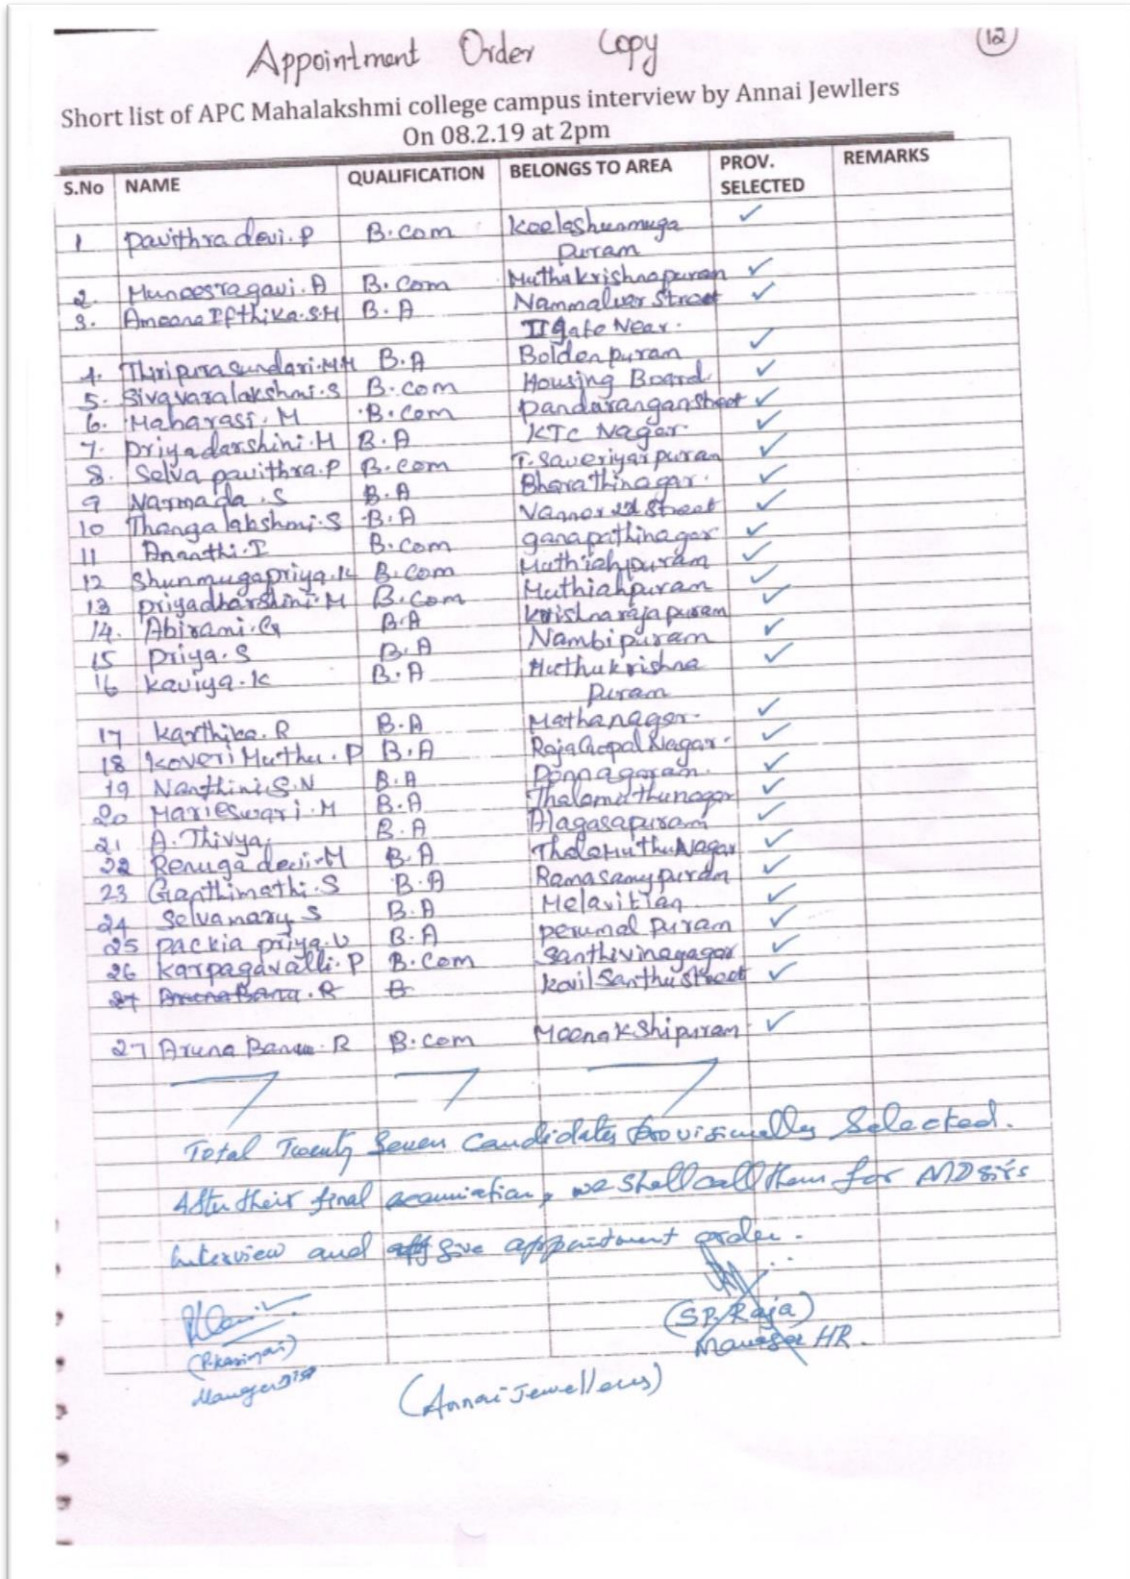 Appointment Order Copy
12
Short list of APC Mahalakshmi college campus interview by Annai Jewllers
On 08.2.19 at 2pm
S.No NAME QUALIFICATION BELONGS TO AREA PROV. SELECTED REMARKS
1 Pavithra devi.P B.Com Keelashunmuga Puram ✓
2. Muneesragavi.A B.Com Muthukrishnapuram ✓
3. Ameena Ifthika.S.H B.A Nammalver Street ✓
II gate Near.
4. Thiripurasundari.M.H B.A Boldenpuram ✓
5. Sivavaralakshmi.S B.Com Housing Board ✓
6. Maharasi.M B.Com Pandarangan Street ✓
7. Priyadarshini.M B.A KTC Nagar. ✓
8. Selva pavithra.P B.Com T.Saveriyarpuram ✓
9 Narmada.S B.A Bharathinagar. ✓
10 Thangalakshmi.S B.A Vannor 2nd Street ✓
11 Ananthi.I B.Com ganapathinagar ✓
12 Shunmugapriya.K B.Com Muthiahpuram ✓
13 Priyadharshini.M B.Com Muthiahpuram ✓
14. Abirami.G B.A Krishnarajapuram ✓
15 Priya.S B.A Nambipuram ✓
16 Kaviya.K B.A Muthukrishna Puram ✓
17 Karthika.R B.A Mathanagar. ✓
18 Koveri Muthu.P B.A RajaGopal Nagar. ✓
19 Nanthini.S.N B.A Ponnagaram. ✓
20 Marieswari.M B.A Thalamuthunagar ✓
21 A.Thivya B.A Alagasapuram ✓
22 Renuga devi.M B.A ThalaMuthuNagar ✓
23 Ganthimathi.S B.A Ramasamypuram ✓
24 Selvamary S B.A Melavittan ✓
25 Packia priya.U B.A Perumal Puram ✓
26 Karpagavalli.P B.Com Santhivinagagar ✓
27 Aruna Banu.R B Kovil Santhu Street ✓
27 Aruna Banu.R B.Com Meenakshipuram ✓
Total Twenty Seven Candidates Provisionally Selected.
After their final examination, we shall call them for MD sir's
Interview and give appointment order.
(S.P. Raja)
Manager HR.
Manager
(Annai Jewellers)